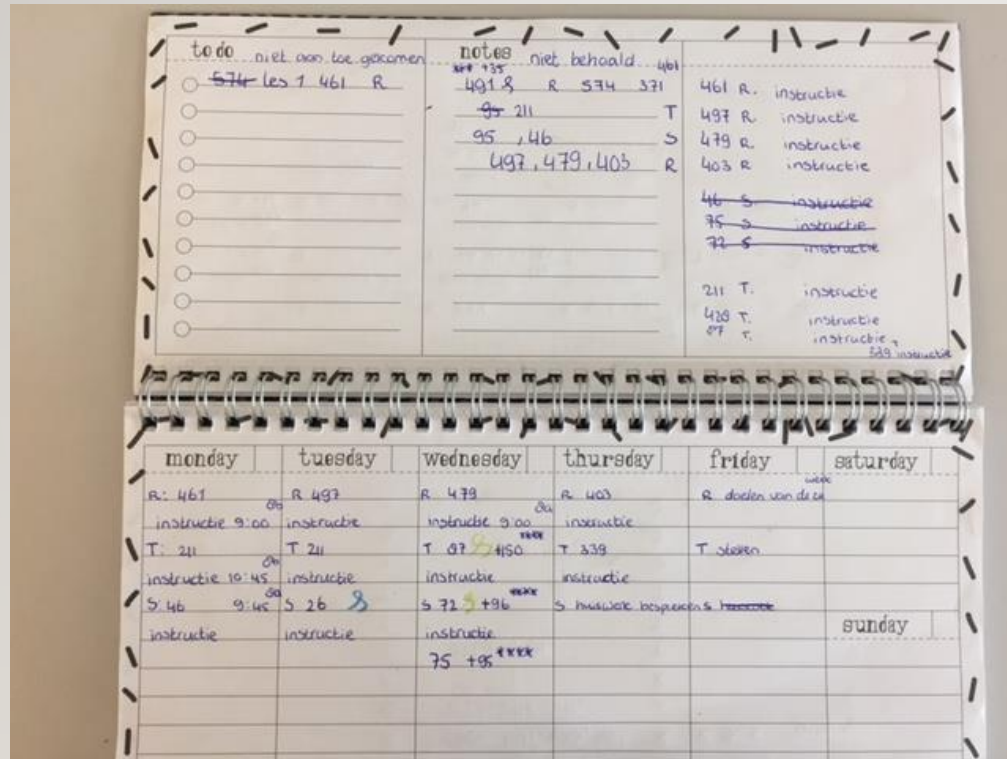 to do niet aan toe gekomen
574 les 1 461 R
notes niet behaald 461
*** +35
491 R 574 371
95 211 T
95 , 46 S
497, 479, 403 R
461 R. instructie
497 R. instructie
479 R. instructie
403 R instructie
46 S instructie
75 S instructie
72 S instructie
211 T. instructie
428 T. instructie
87 T. instructie
339 instructie
monday tuesday wednesday thursday friday saturday
R: 461 R 497 R 479 R 403 R doelen van de week
instructie 9:00 instructie instructie 9:00 instructie
T: 211 T 211 T 87 +150 **** T 339 T
instructie 10:45 instructie instructie instructie
S: 46 9:45 S 26 S 72 +96 **** S bespreken S
instructie instructie instructie
sunday
75 +95 ****